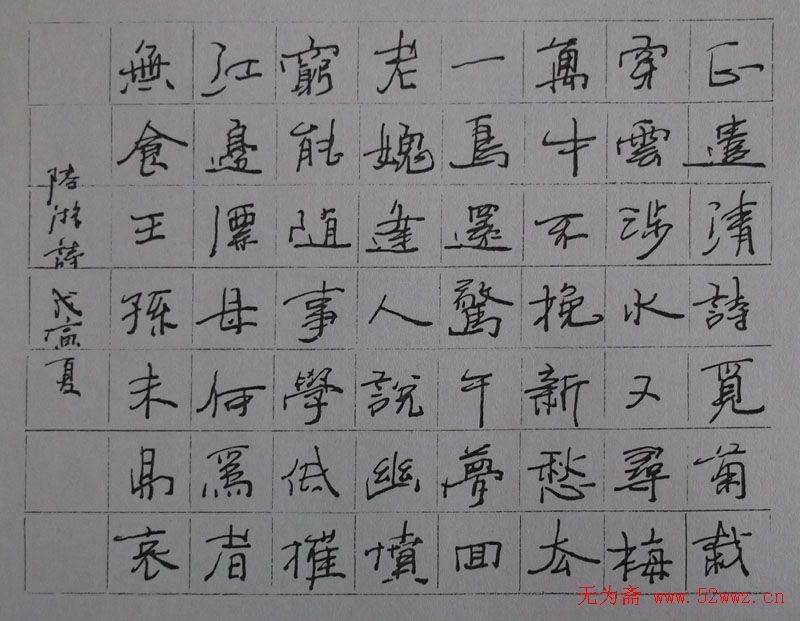 正遣清詩覓菊栽
穿雲涉水又尋梅
萬牛不挽新愁去
一鳥還驚午夢回
老媿逢人說幽憤
窮能随事學低摧
江邊漂母何爲者
無食王孫未易哀
陸游詩 戊寅夏
无为斋 www.52wwz.cn